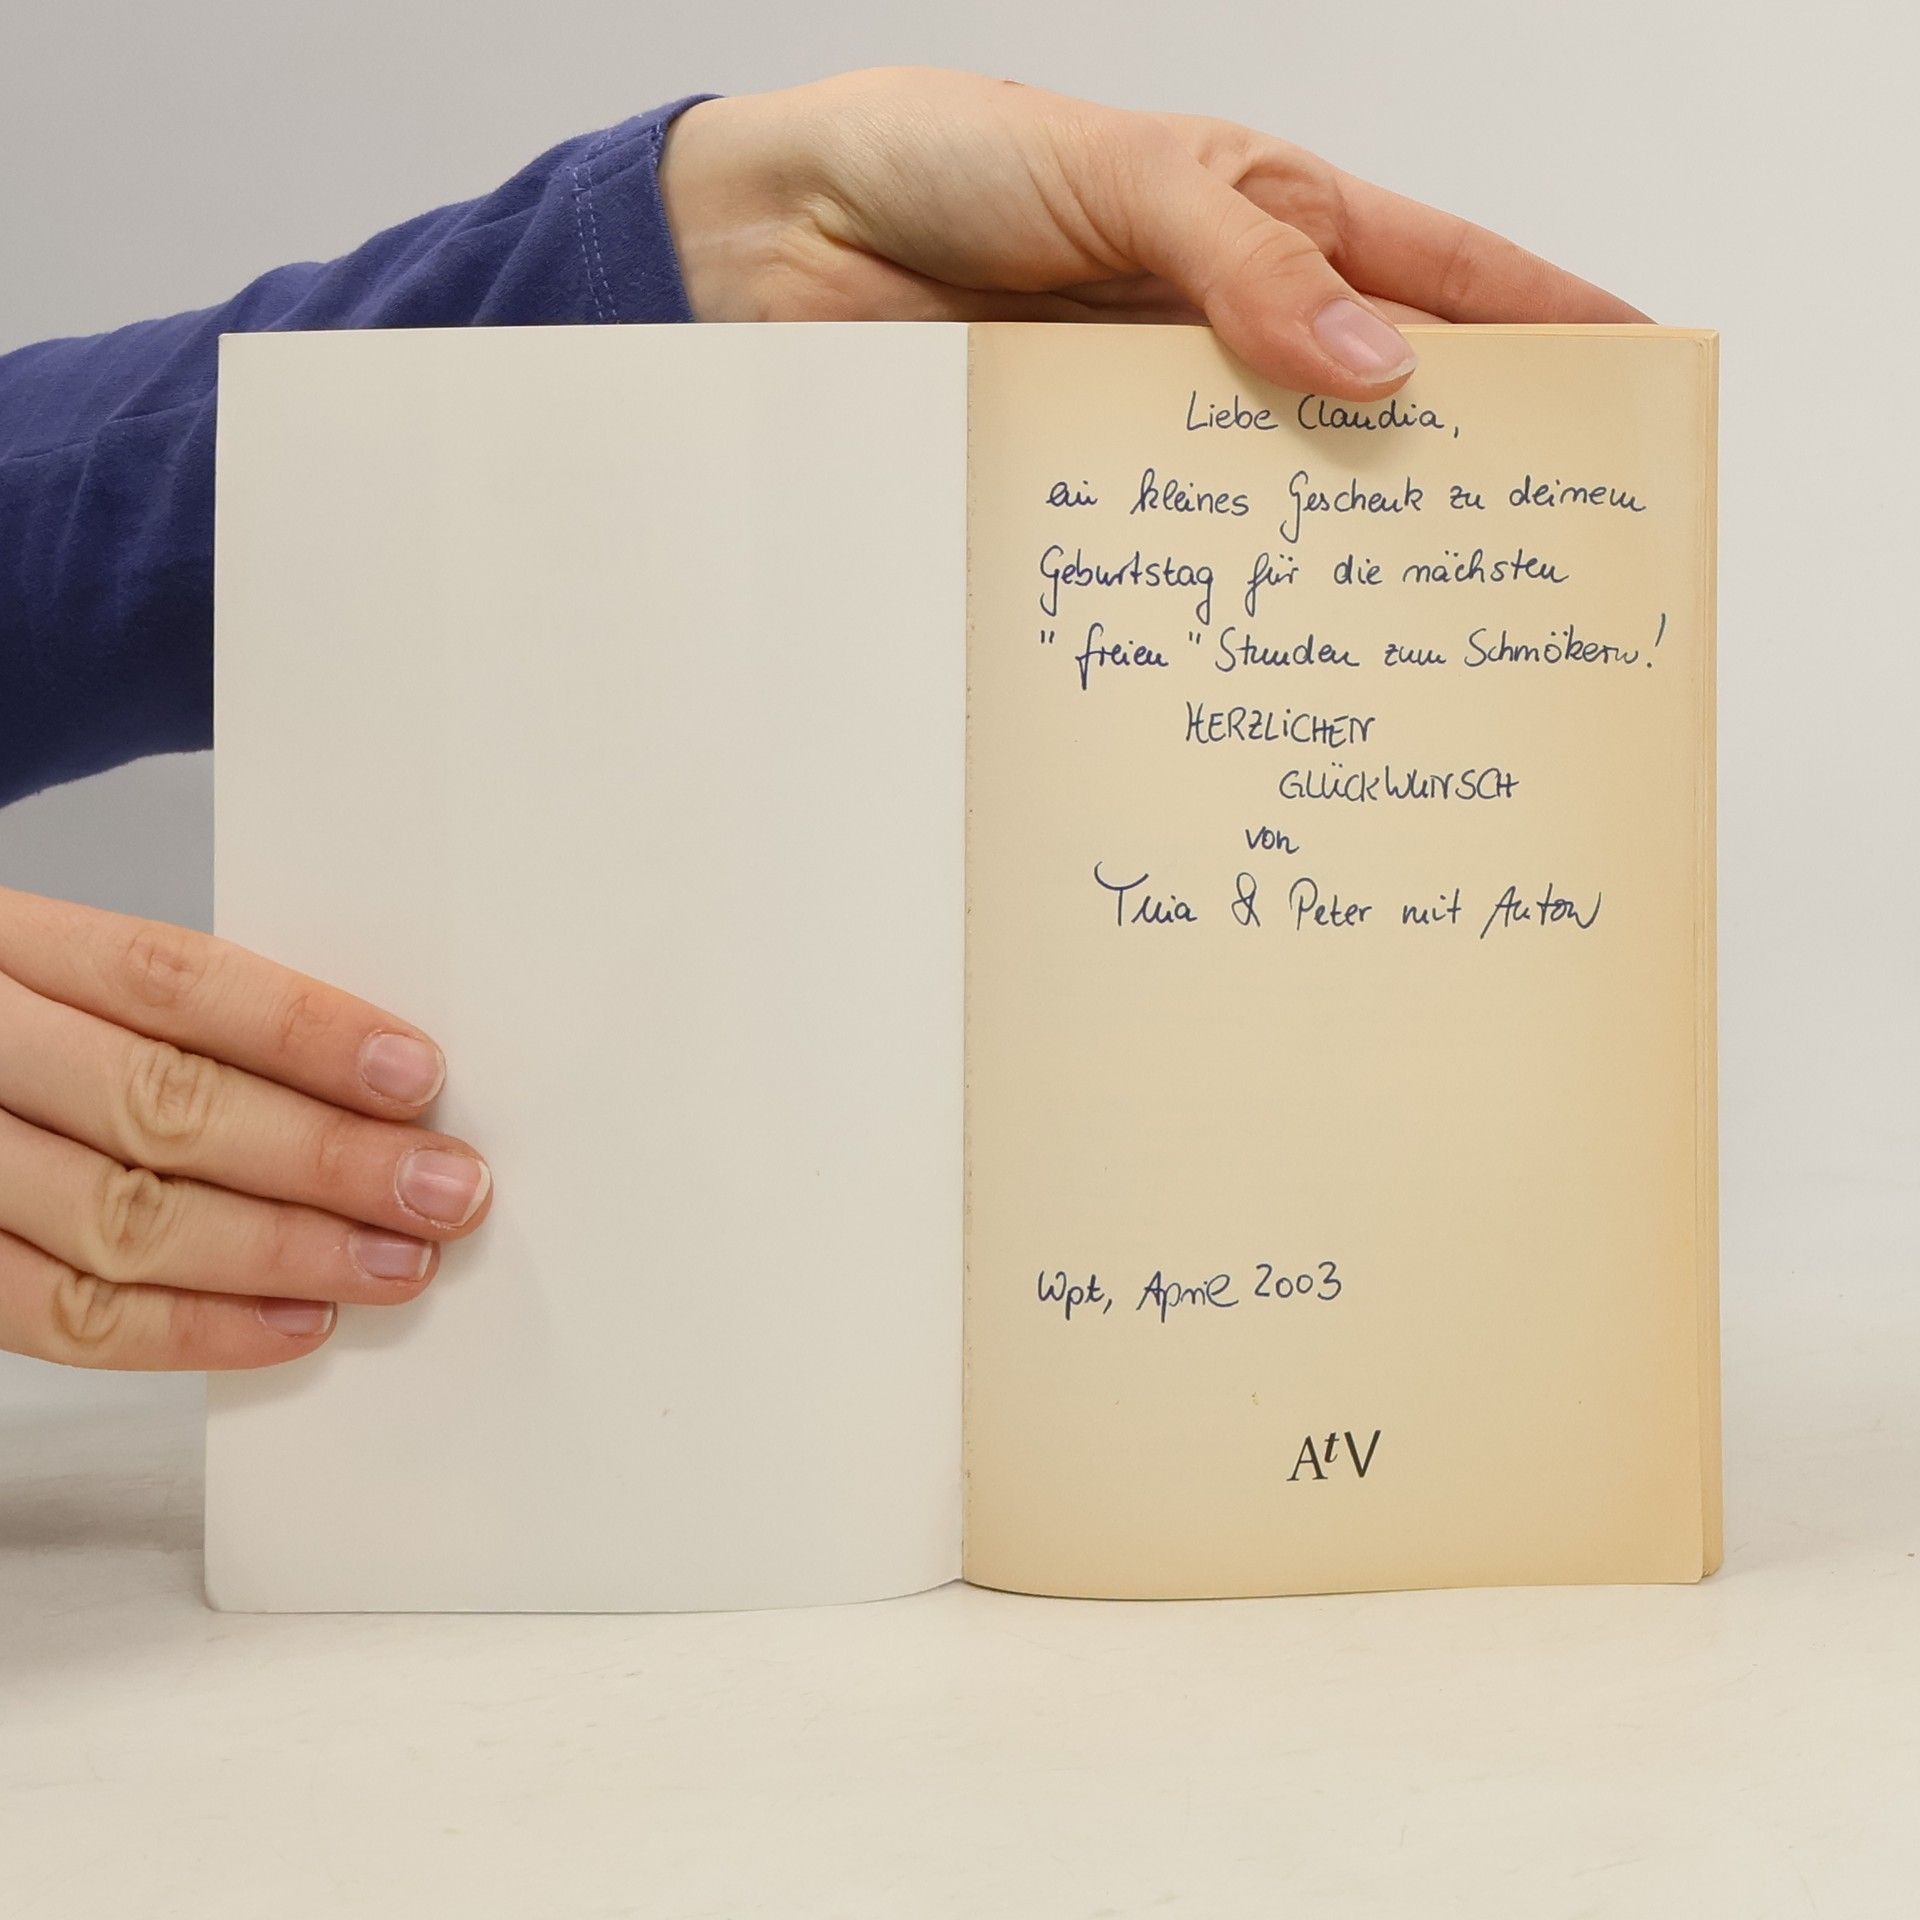 Liebe Claudia,
ein kleines Geschenk zu deinem
Geburtstag für die nächsten
"freien" Stunden zum Schmökern!
HERZLICHEN
GLÜCKWUNSCH
von
& Peter mit Anton
Wpt, April 2003
AtV